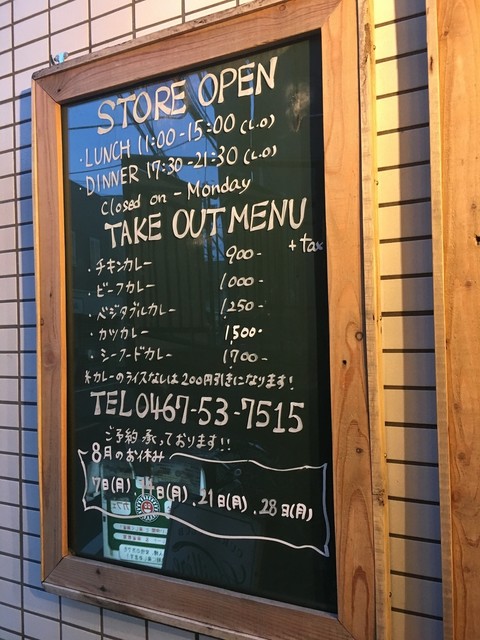 STORE OPEN
・LUNCH 11:00-15:00 (L.O)
・DINNER 17:30-21:30 (L.O)
Closed on - Monday
TAKE OUT MENU
+tax
・チキンカレー 900-
・ビーフカレー 1000-
・ベジタブルカレー 1250-
・カツカレー 1500-
・シーフードカレー 1700-
*カレーのライスなしは200円引きになります!
TEL0467-53-7515
ご予約承っております!!
8月のお休み
7日(月)、14日(月)、21日(月)、28日(月)